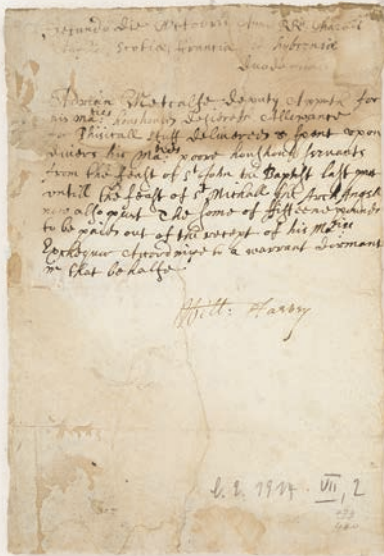 Secundo die Octobris Anno RRs Charoli
Scotiæ, Franciæ et Hyberniæ
duodecimo
Adrian Metcalfe deputy Appoth for
his Maties houshould desireth Allowance
for Phisicall stuff delivered & spent upon
divers his Maties poore houshould servants
from the feast of St John the Baptist last past
untill the feast of St Michall the Arch Angell
now also past The some of fifteene pounds
to be paid out of the receipt of his Maties
Exchequer According to a warrant dormant
in that behalfe
Will: Harvey
1924. VII, 2